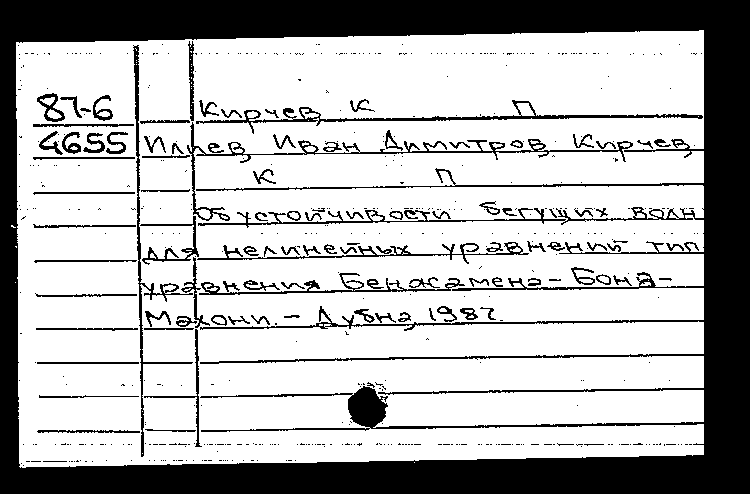 87-6 Кирчев, К П
4655 Илиев, Иван Димитров, Кирчев,
К П
Об устойчивости бегущих волн
для нелинейных уравнений тип
уравнения Бенжамена-Бона-
Махони. - Дубна, 1987.